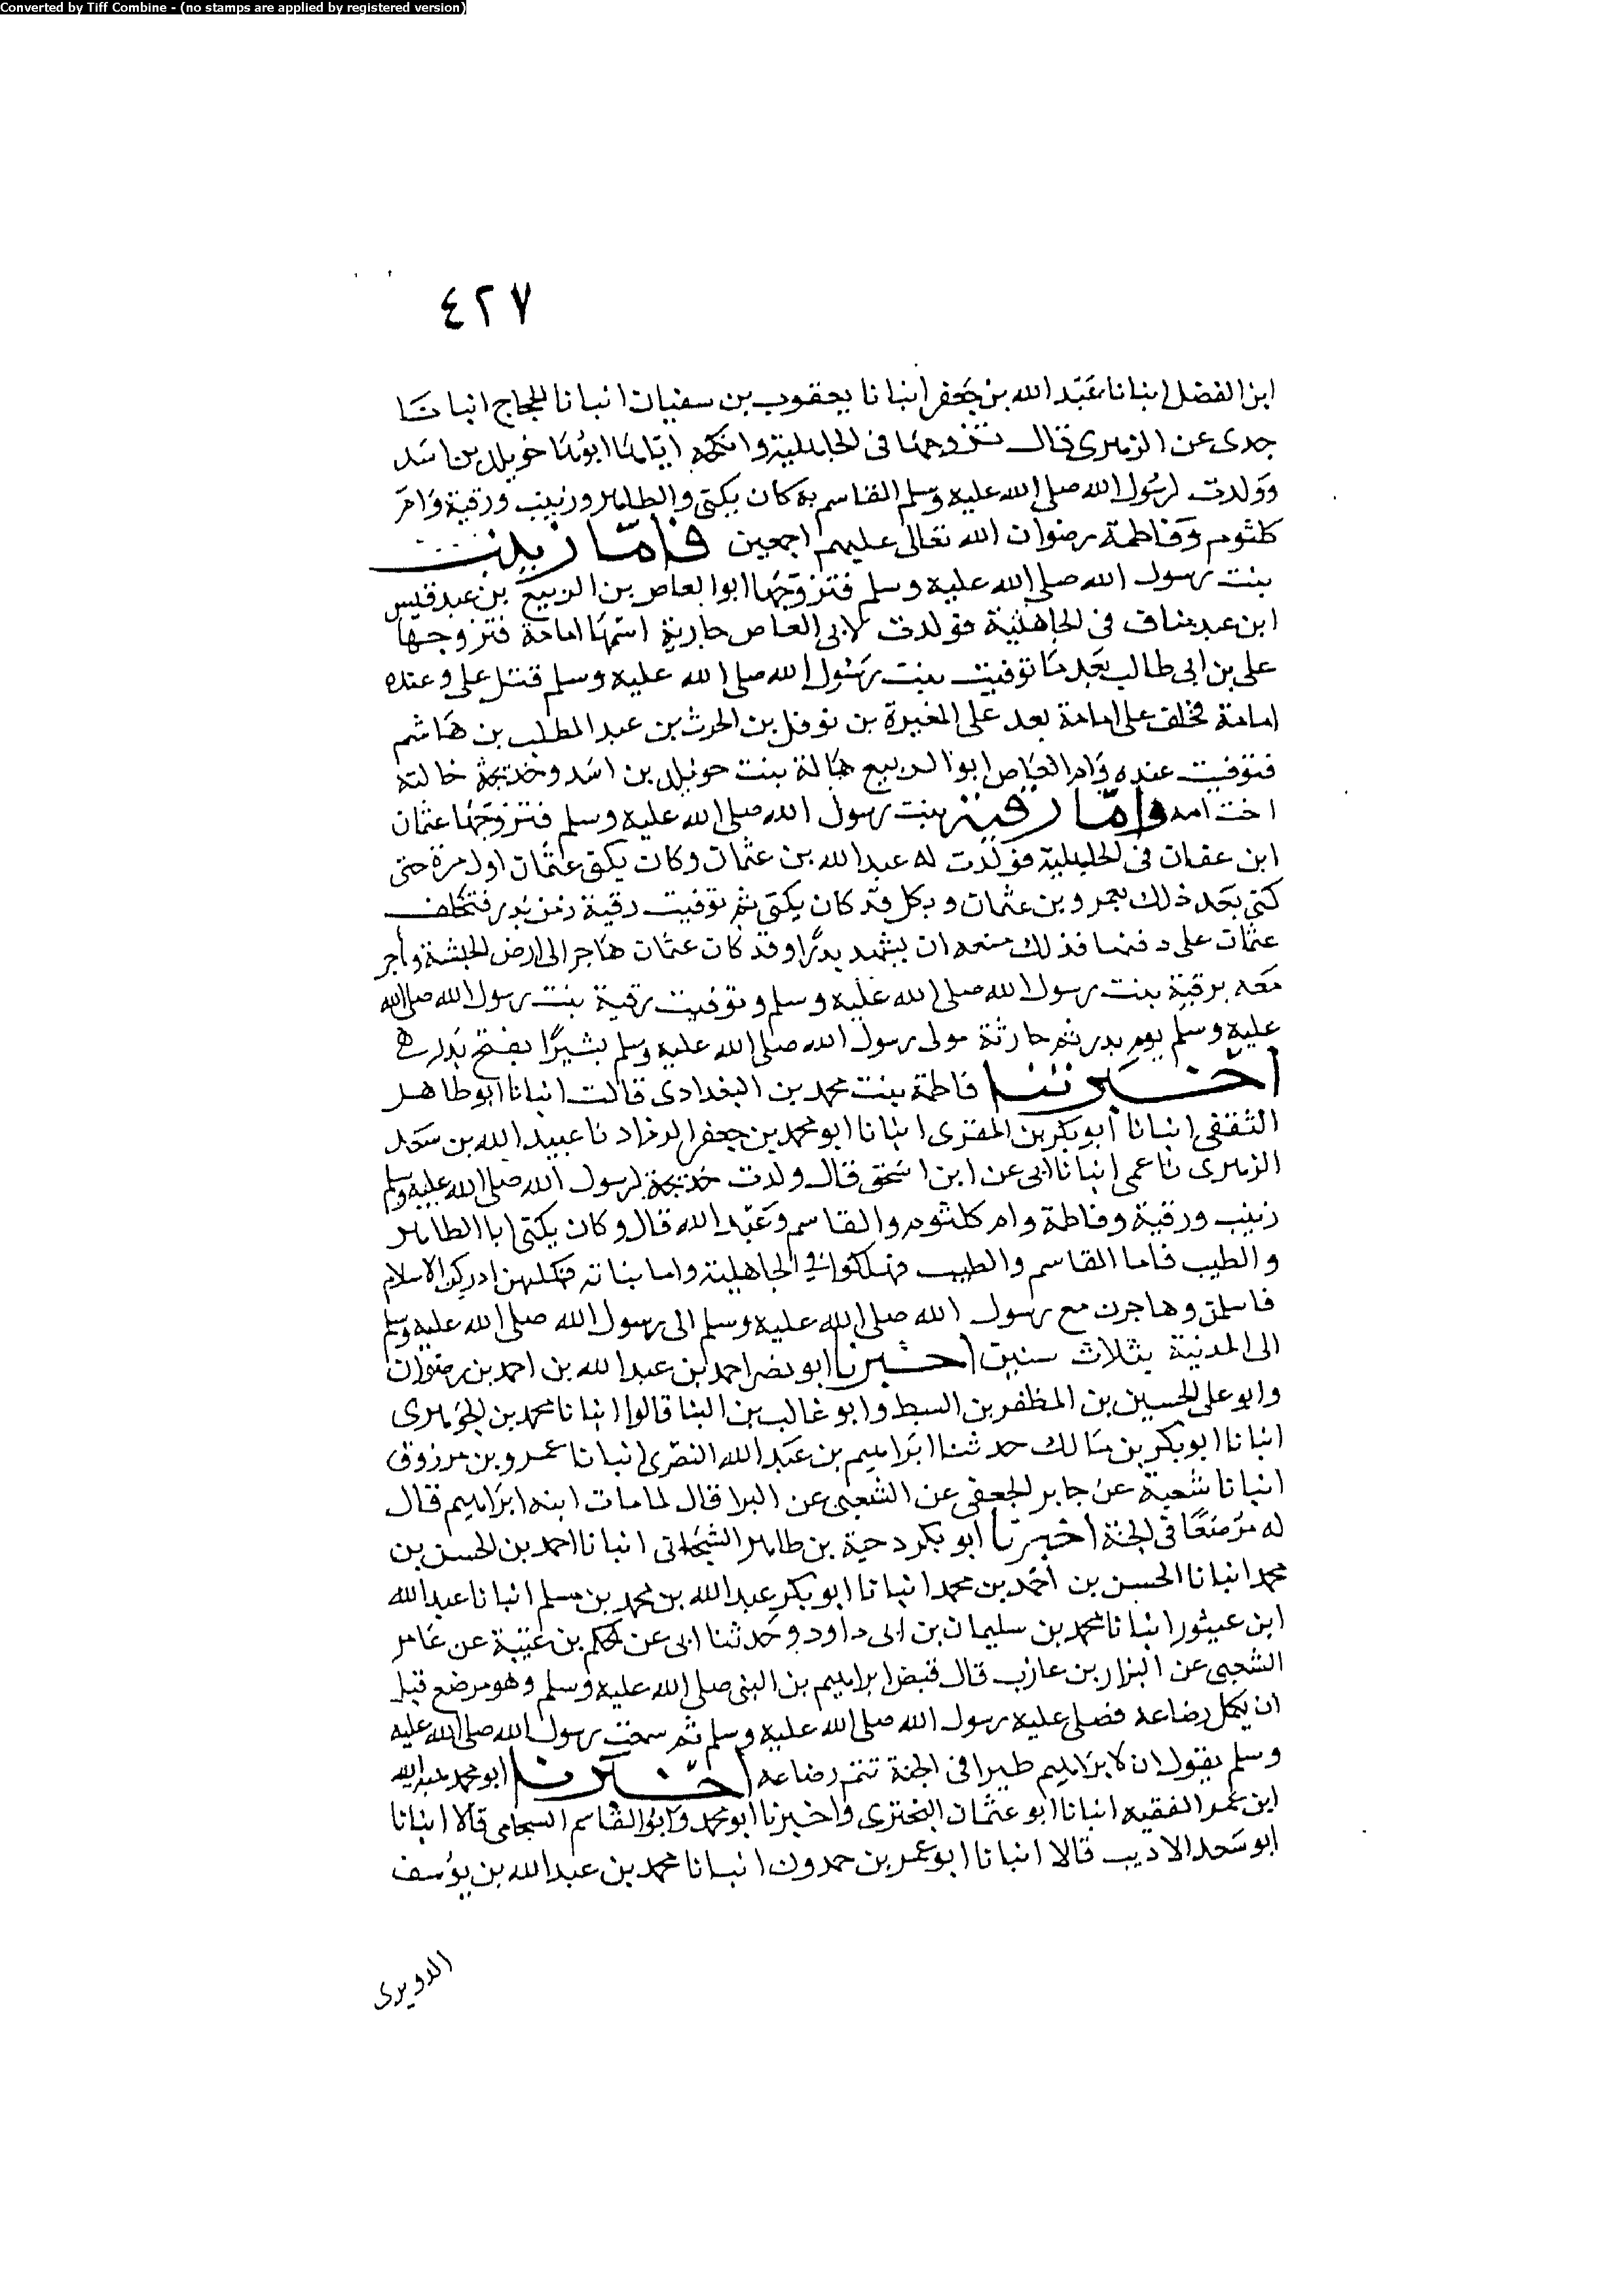 Converted by Tiff Combine - (no stamps are applied by registered version)
٤٢٧
ابن الفضل انبانا عبد الله بن جعفر انبانا يعقوب بن سفيان انبانا الحجاج انبانا
جدى عن الزهرى قال تزوجها فى الجاهلية وانكحه اياها ابوها خويلد بن اسد
وولدت لرسول الله صلى الله عليه وسلم القاسم به كان يكنى والطاهر وزينب ورقية وام
كلثوم وفاطمة رضوان الله تعالى عليهم اجمعين فاما زينت
بنت رسول الله صلى الله عليه وسلم فتزوجها ابوا لعاص بن الربيع بن عبد قيس
ابن عبد مناف فى الجاهلية فولدت لابى العاص جارية اسمها امامة فتزوجها
على بن ابى طالب بعد ما توفيت بنت رسول الله صلى الله عليه وسلم قتل على وعنده
امامة فخلف على امامة بعد على المغيرة بن نوفل بن الحرث بن عبد المطلب بن هاشم
فتوفيت عنده وام العاص ابوا الربيع هالة بنت خويلد بن اسد وخديجة خالته
اخت امه واما رقية بنت رسول الله صلى الله عليه وسلم فتزوجها عثمان
ابن عفان فى الجاهلية فولدت له عبد الله بن عثمان وكان يكنى عثمان اول مرة حتى
كنى بعد ذلك بعمرو بن عثمان وبكل قد كان يكنى ثم توفيت رقية زمن بدر فتخلف
عثمان على دفنها فذلك منعه ان يشهد بدرًا وقد كان عثمان هاجر الى ارض الحبشة وهاجر
معه برقية بنت رسول الله صلى الله عليه وسلم وتوفيت رقية بنت رسول الله صلى الله
عليه وسلم يوم بدر ثم حارثة مولى رسول الله صلى الله عليه وسلم بشيرًا بفتح بدر هـ
اخبرتنا فاطمة بنت محمد بن البغدادى قالت انبانا ابو طاهر
الثقفى انبانا ابو بكر بن المقرى انبانا ابو محمد بن جعفر الزراد نا عبيد الله بن سعد
الزهرى نا عمى انبانا ابى عن ابن اسحق قال ولدت خديجة لرسول الله صلى الله عليه وسلم
زينب ورقية وفاطة وام كلثوم والقاسم وعبد الله قال وكان يكنى ابا الطاهر
والطيب فاما القاسم والطيب فهلكوا فى الجاهلية واما بناته فكلهن ادركن الاسلام
فاسلمن وهاجرن مع رسول الله صلى الله عليه وسلم الى رسول الله صلى الله عليه وسلم
الى المدنية بثلاث سنين اخبرنا ابو نصر احمد بن عبد الله بن احمد بن رضوان
وابو على الحسين بن المظفر بن السبط وابو غالب بن البنا قالوا انبانا محمد بن الجوهرى
انبانا ابو بكر بن مالك حدثنا ابراهيم بن عبد الله النصرى انبانا عمرو بن مرزوق
انبانا شعبة عن جابر الجعفى عن الشعبى عن البرا قال لما مات ابنه ابراهيم قال
له مرضعًا فى الجنة اخبرنا ابو بكر دحية بن طاهر الشحامى انبانا احمد بن الحسن بن
محمد انبانا الحسن بن احمد بن محمد انبانا ابو بكر عبد الله بن محمد بن مسلم انبانا عبد الله
ابن عيثور انبانا محمد بن سليمان بن ابى داود وحدثنا ابى عن الحكم بن عتيبة عن عامر
الشعبى عن البرار بن عازب قال قبض ابراهيم بن النبى صلى الله عليه وسلم وهو مرضع قبل
ان يكمل رضاعه فصلى عليه رسول الله صلى الله عليه وسلم ثم سمعت رسول الله صلى الله عليه
وسلم يقول ان لابراهيم طيرا فى الجنة تتم رضاعه اخبرنا ابو محمد عبد الله
ابن عمر الفقيه انبانا ابو عثمان البخترى واخبرنا ابو محمد وابو القاسم السجامى قالا انبانا
ابو سعد الاديب قالا انبانا ابو عمر بن حمدون انبانا محمد بن عبد الله بن يوسف
الدويرى